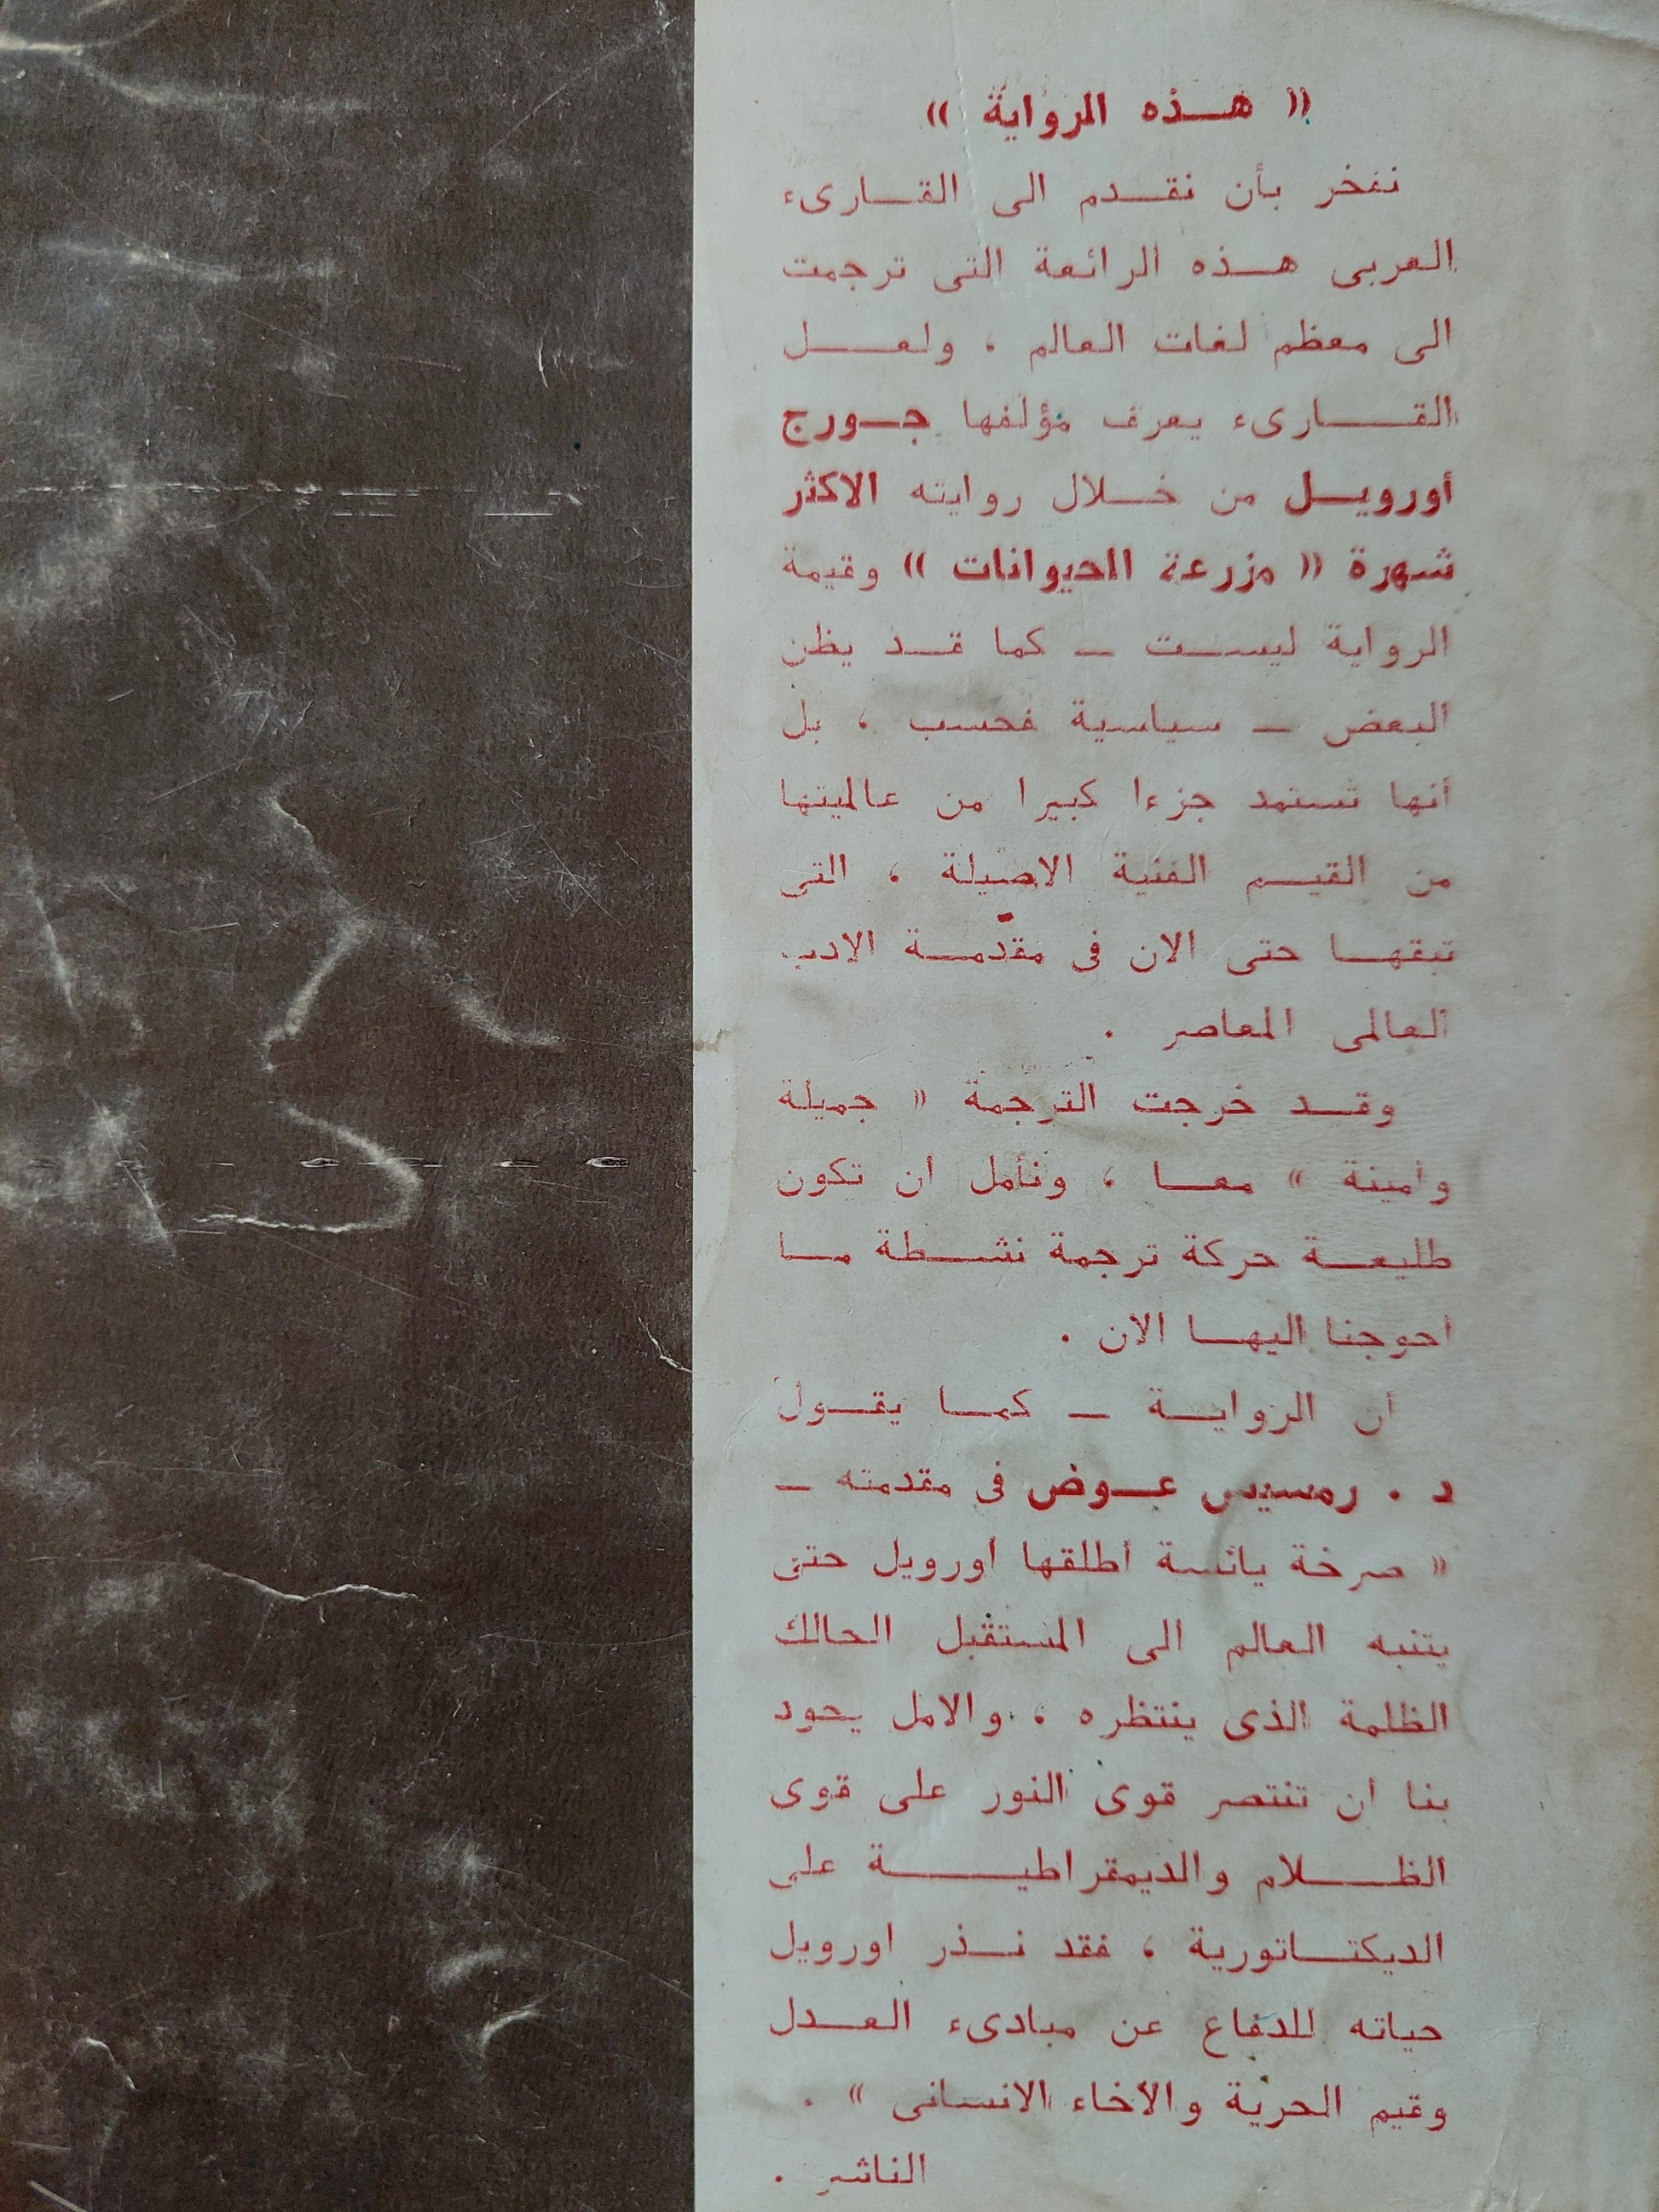 « هــذه الرواية »
نفخر بأن نقــدم الى القــارىء
العربى هــذه الرائعة التى ترجمت
الى معظم لغات العالم ، ولعــل
القــارىء يعرف مؤلفها جــورج
أورويــل من خــلال روايته الاكثر
شهرة « مزرعة الحيوانات » وقيمة
الرواية ليســت ــ كما قــد يظن
البعض ــ سياسية فحسب ، بل
أنها تستمد جزءا كبيرا من عالميتها
من القيــم الفنية الاصيلة ، التى
تبقهــا حتى الان فى مقدمــة الادب
العالمى المعاصر .
وقــد خرجت الترجمة « جميلة
وأمينة » معــا ، ونأمل ان تكون
طليعــة حركة ترجمة نشــطة مــا
احوجنا اليهــا الان .
أن الروايــة ــ كمــا يقــول
د . رمسيس عــوض فى مقدمته ــ
« صرخة يائسة أطلقها اورويل حتى
يتنبه العالم الى المستقبل الحالك
الظلمة الذى ينتظره ، والامل يحود
بنا ان تنتصر قوى النور على قوى
الظــلام والديمقراطيــة على
الديكتــاتورية ، فقد نــذر اورويل
حياته للدفاع عن مبادىء العــدل
وقيم الحرية والأخاء الانسانى » .
الناشر .